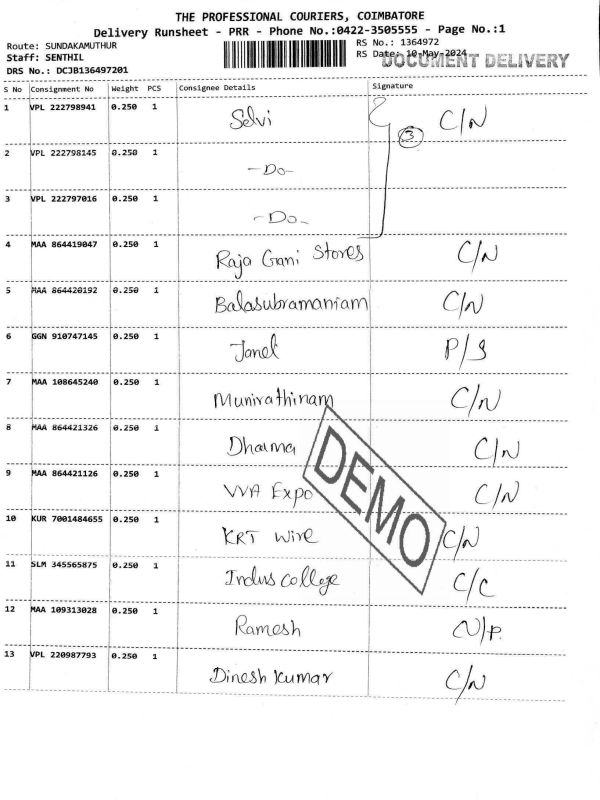 THE PROFESSIONAL COURIERS, COIMBATORE
Delivery Runsheet - PRR - Phone No.:0422-3505555 - Page No.:1
Route: SUNDAKAMUTHUR RS No.: 1364972
Staff: SENTHIL RS Date: 10-May-2024 DOCUMENT DELIVERY
DRS No.: DCJB136497201
S No Consignment No Weight PCS Consignee Details Signature
1 VPL 222798941 0.250 1 Selvi 3 C/N
2 VPL 222798145 0.250 1 -Do-
3 VPL 222797016 0.250 1 -Do-
4 MAA 864419047 0.250 1 Raja Gani Stores C/N
5 MAA 864420192 0.250 1 Balasubramaniam C/N
6 GGN 910747145 0.250 1 Janet P/S
7 MAA 108645240 0.250 1 Munirathinam C/N
8 MAA 864421326 0.250 1 Dharma C/N
9 MAA 864421126 0.250 1 VVA Expo C/N
10 KUR 7001484655 0.250 1 KRT Wire C/N
11 SLM 345565875 0.250 1 Indus College C/C
12 MAA 109313028 0.250 1 Ramesh N/P.
13 VPL 220987793 0.250 1 Dinesh Kumar C/N
DEMO